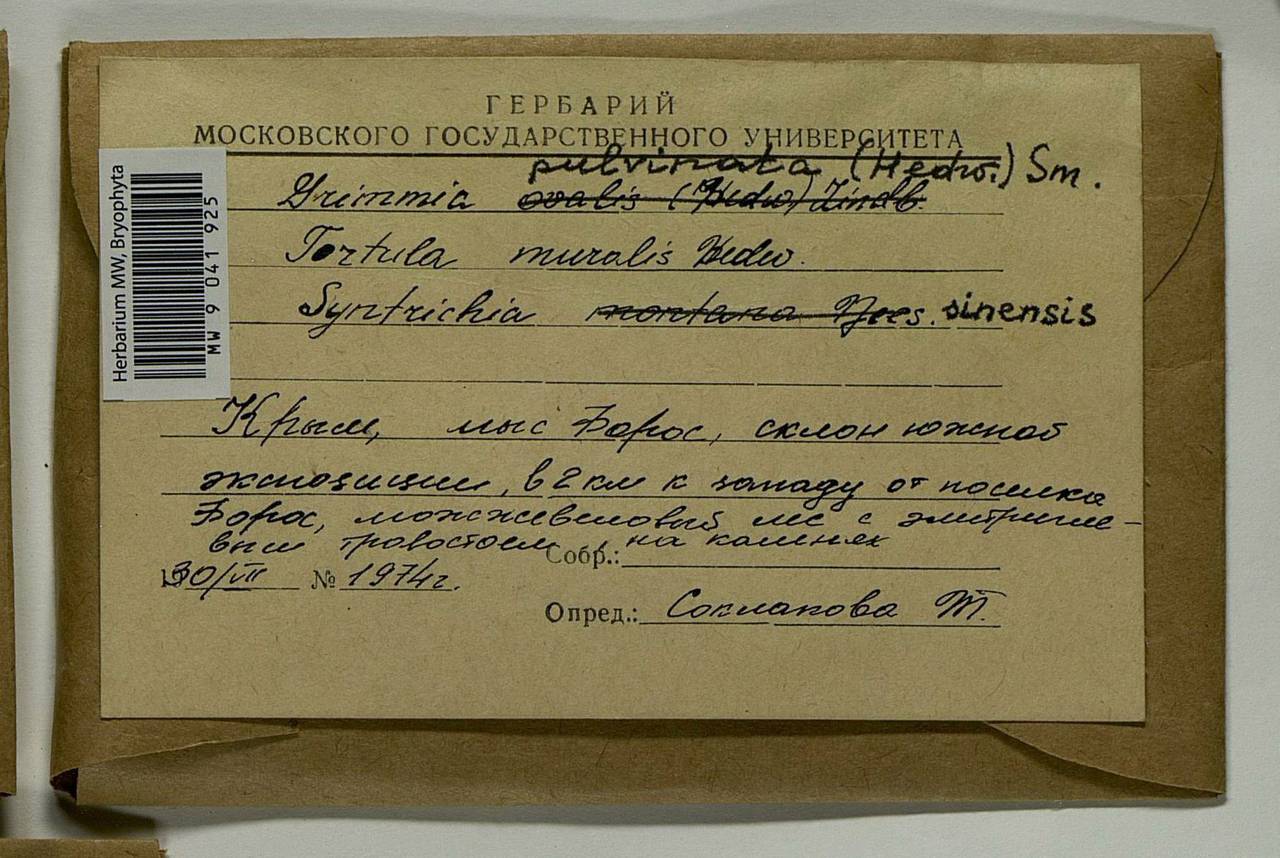 ГЕРБАРИЙ
МОСКОВСКОГО ГОСУДАРСТВЕННОГО УНИВЕРСИТЕТА
pulvinata (Hedw.) Sm.
Grimmia ovalis (Hedw) Lindb.
Tortula muralis Hedw.
Syntrichia montana Nees. sinensis
Крым, мыс Форос, склон южной
экспозиции, в 2 км к западу от поселка
Форос, можжевеловый лес с
травостоем, на камнях
Собр.:
30/VII № 1974г.
Опред.: Соклакова Т.
Herbarium MW, Bryophyta
MW 9 041 925